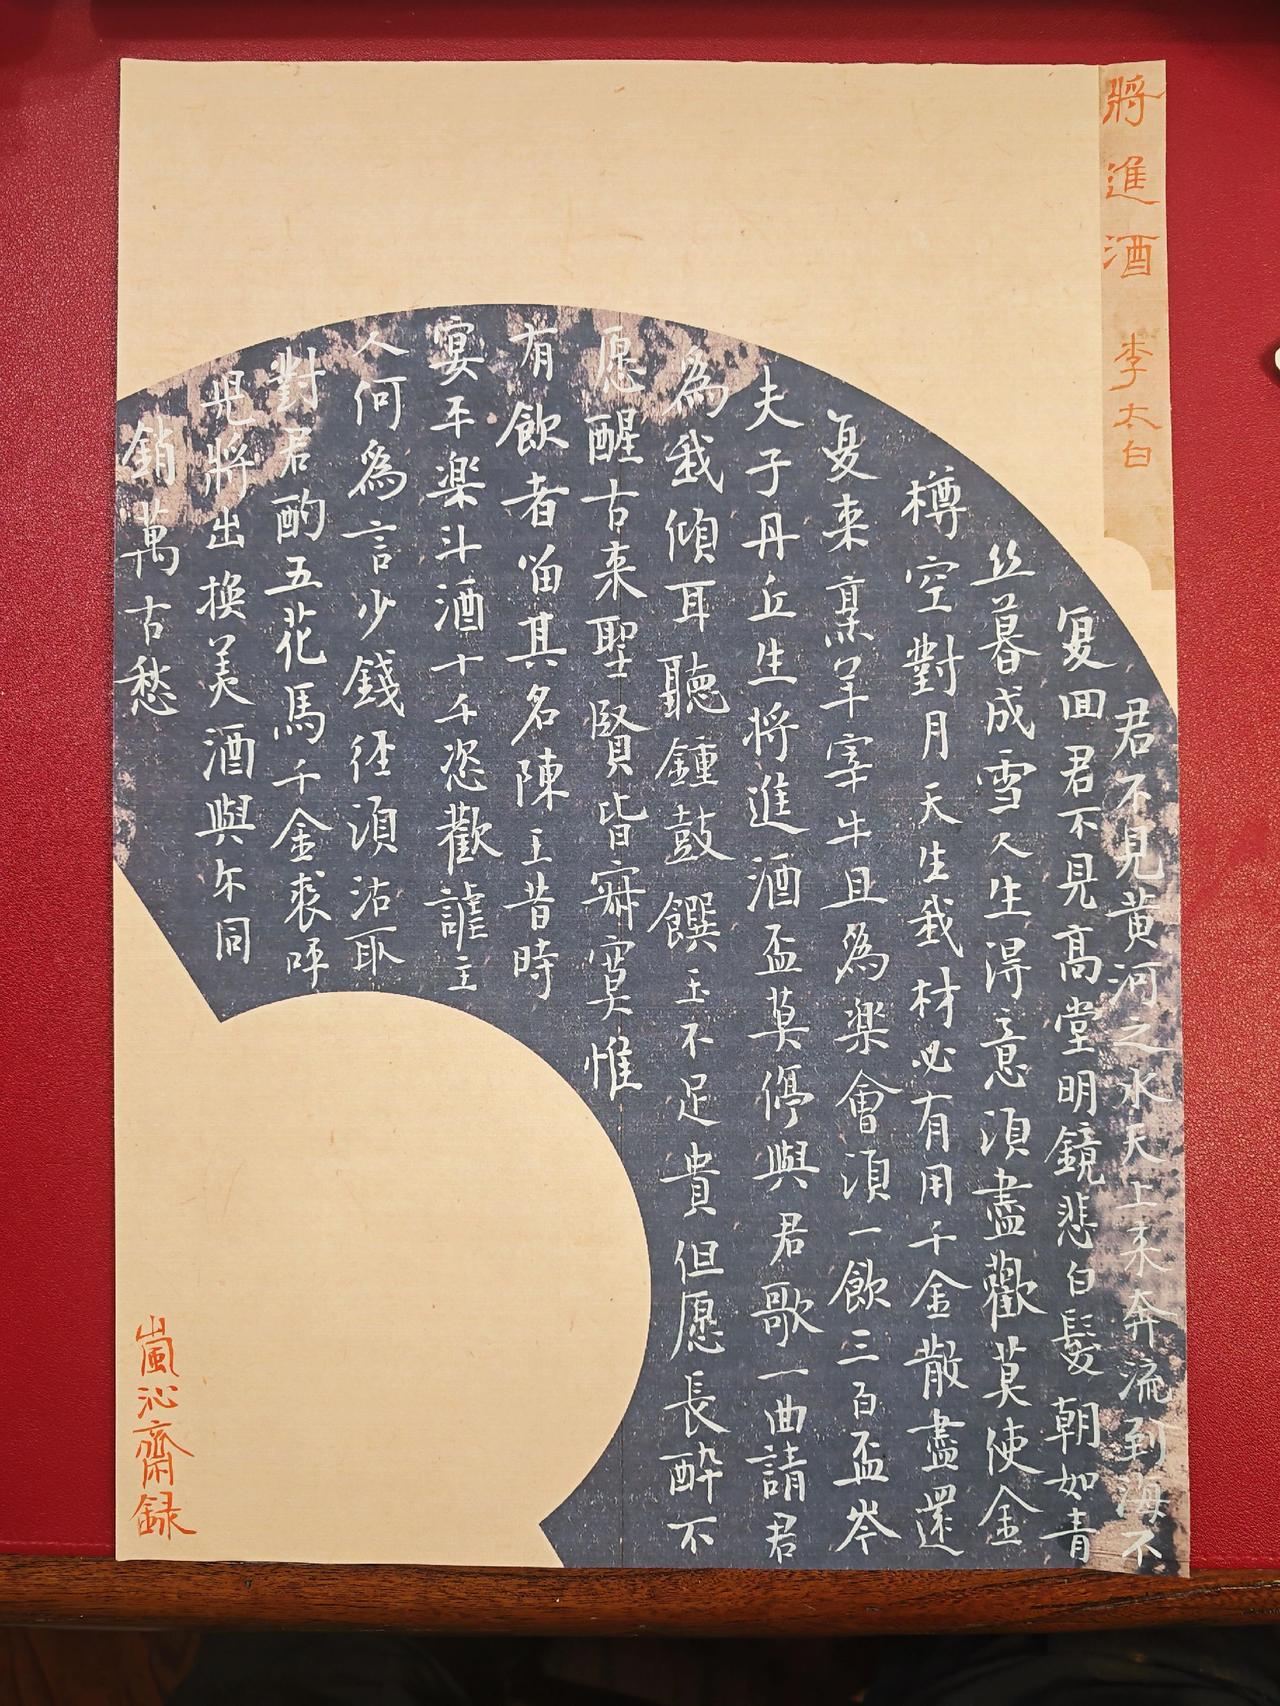 將進酒 李太白
君不見黄河之水天上来奔流到海不
复回君不見高堂明鏡悲白髮朝如青
丝暮成雪人生得意湏盡歡莫使金
樽空對月天生我材必有用千金散盡還
复来烹羊宰牛且為楽會湏一飲三百盃岑
夫子丹丘生将進酒盃莫停與君歌一曲請君
為我傾耳聽鍾鼓饌玉不足貴但愿長醉不
愿醒古来聖賢皆寂寞惟
有飲者留其名陳王昔時
宴平楽斗酒十千恣歡謔主
人何為言少錢径湏沽取
對君酌五花馬千金裘呼
児將出換美酒與尔同
銷萬古愁
嵐沁齋録